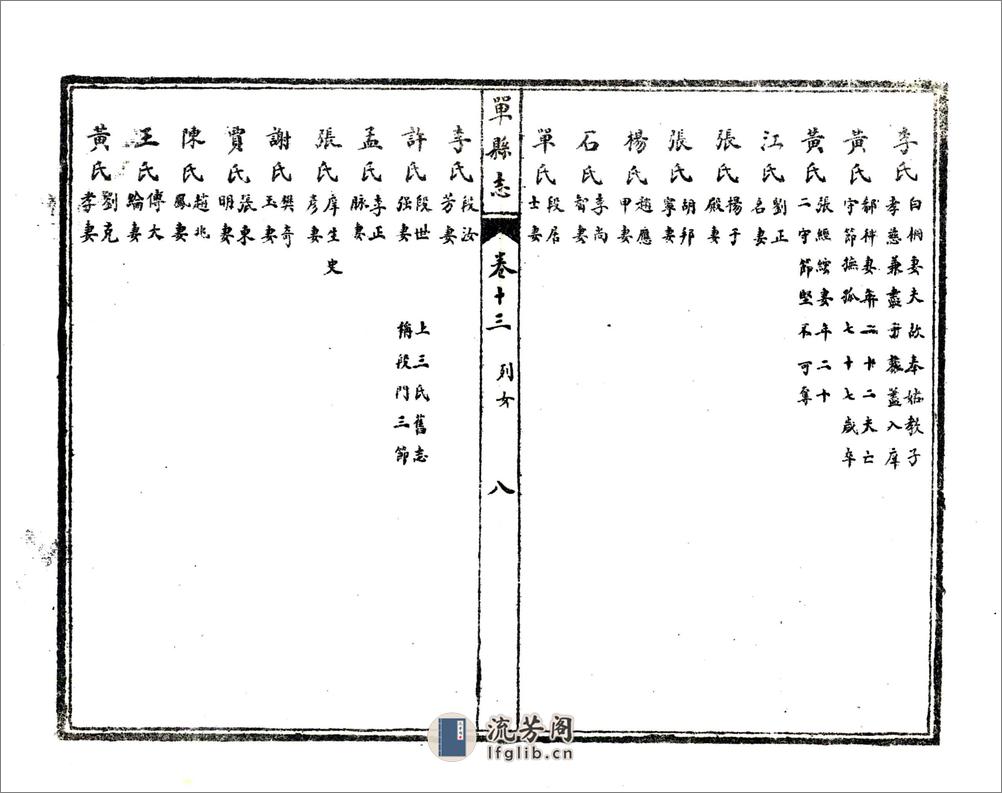 李氏 白桐妻夫故奉姑教子孝慈兼盡子蓋入庠
黃氏 郝秤妻年二十二夫亡守節撫孤七十七歲卒
黃氏 張經綸妻年二十二守節堅不可奪
江氏 劉正名妻
張氏 楊子殿妻
張氏 胡邦寧妻
楊氏 趙應甲妻
石氏 李尚智妻
單氏 段居士妻
單縣志 卷十三 列女 八
李氏 段汝芳妻
許氏 段世强妻 上三氏舊志稱段門三節
孟氏 李正脉妻
張氏 庠生史彦妻
謝氏 樊奇玉妻
賈氏 張東明妻
陳氏 趙兆鳳妻
王氏 傅大輪妻
黃氏 劉克孝妻
流芳阁
lfglib.cn